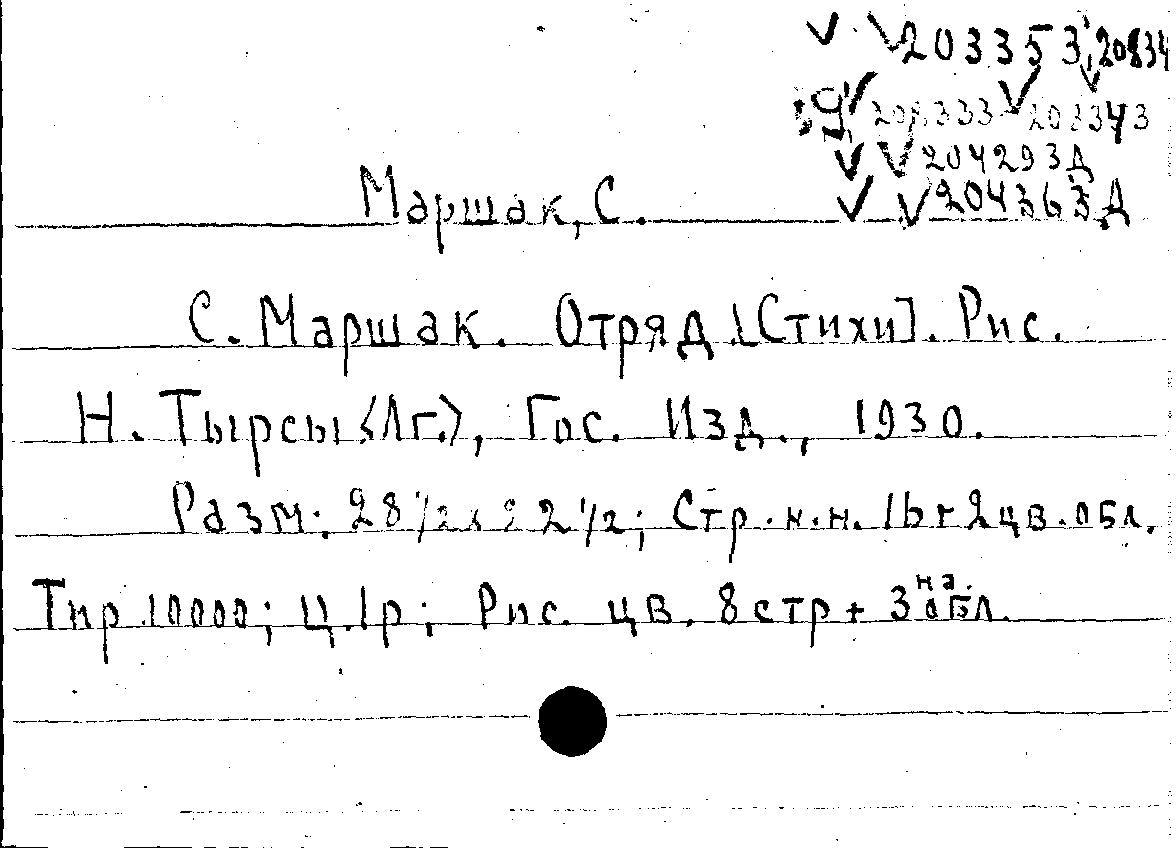 203353, 20834
208333 203343
204293Д
204363Д
Маршак, С.
С. Маршак. Отряд [Стихи]. Рис.
Н. Тырсы (Лг.), Гос. Изд., 1930.
Разм: 28 1/2 х 22 1/2; Стр. н.н. 16 + 2 цв. обл.
Тир. 10000; Ц. 1р; Рис. цв. 8 стр + 3 на обл.